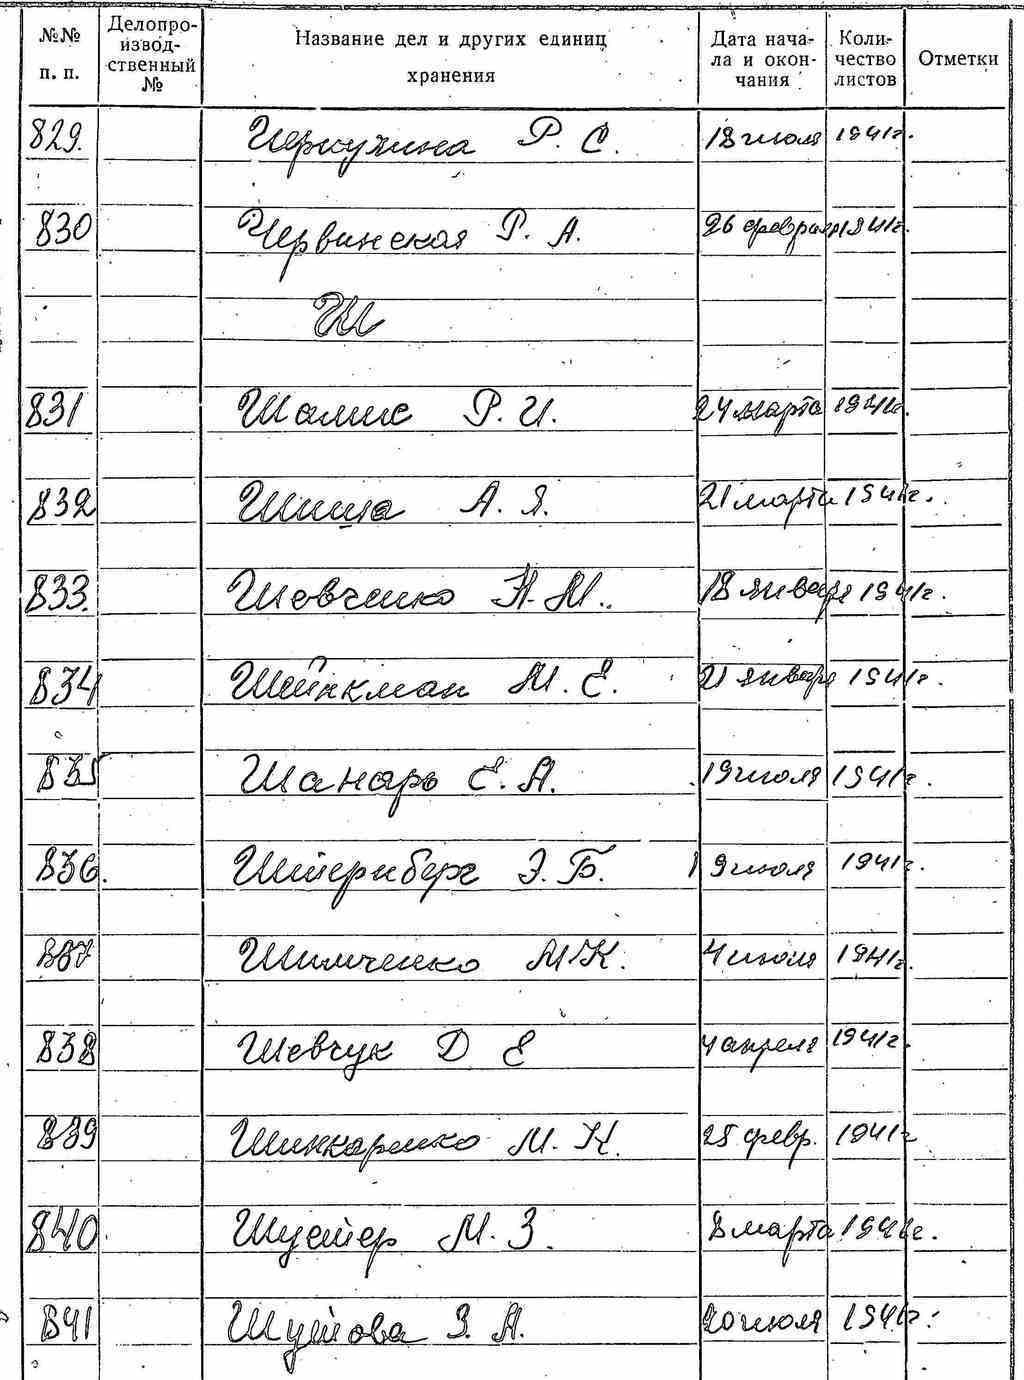 №№ п. п. Делопроизводственный № Название дел и других единиц хранения Дата начала и окончания Количество листов Отметки
829. Черкухина Р. С. 18 июля 1941г.
830 Червинская Р. А. 26 февраля 1941г.
Ш
831 Шамис Р. И. 24 марта 1941г.
832 А. Я. 21 марта 1941г.
833. Шевченко Н. М. 18 января 1941г.
834 Шейнкман М. Е. 21 января 1941г.
835 Шанарь Е. А. 19 июля 1941г.
836. Штернберг Э. Б. 19 июля 1941г.
837 Шимченко М. К. 4 июля 1941г.
838 Шевчук Д Е 4 апреля 1941г.
839 Шинкаренко М. К. 25 февр. 1941г
840. М. З. 8 марта 1941г.
841 Шутова З. А. 20 июля 1941г.